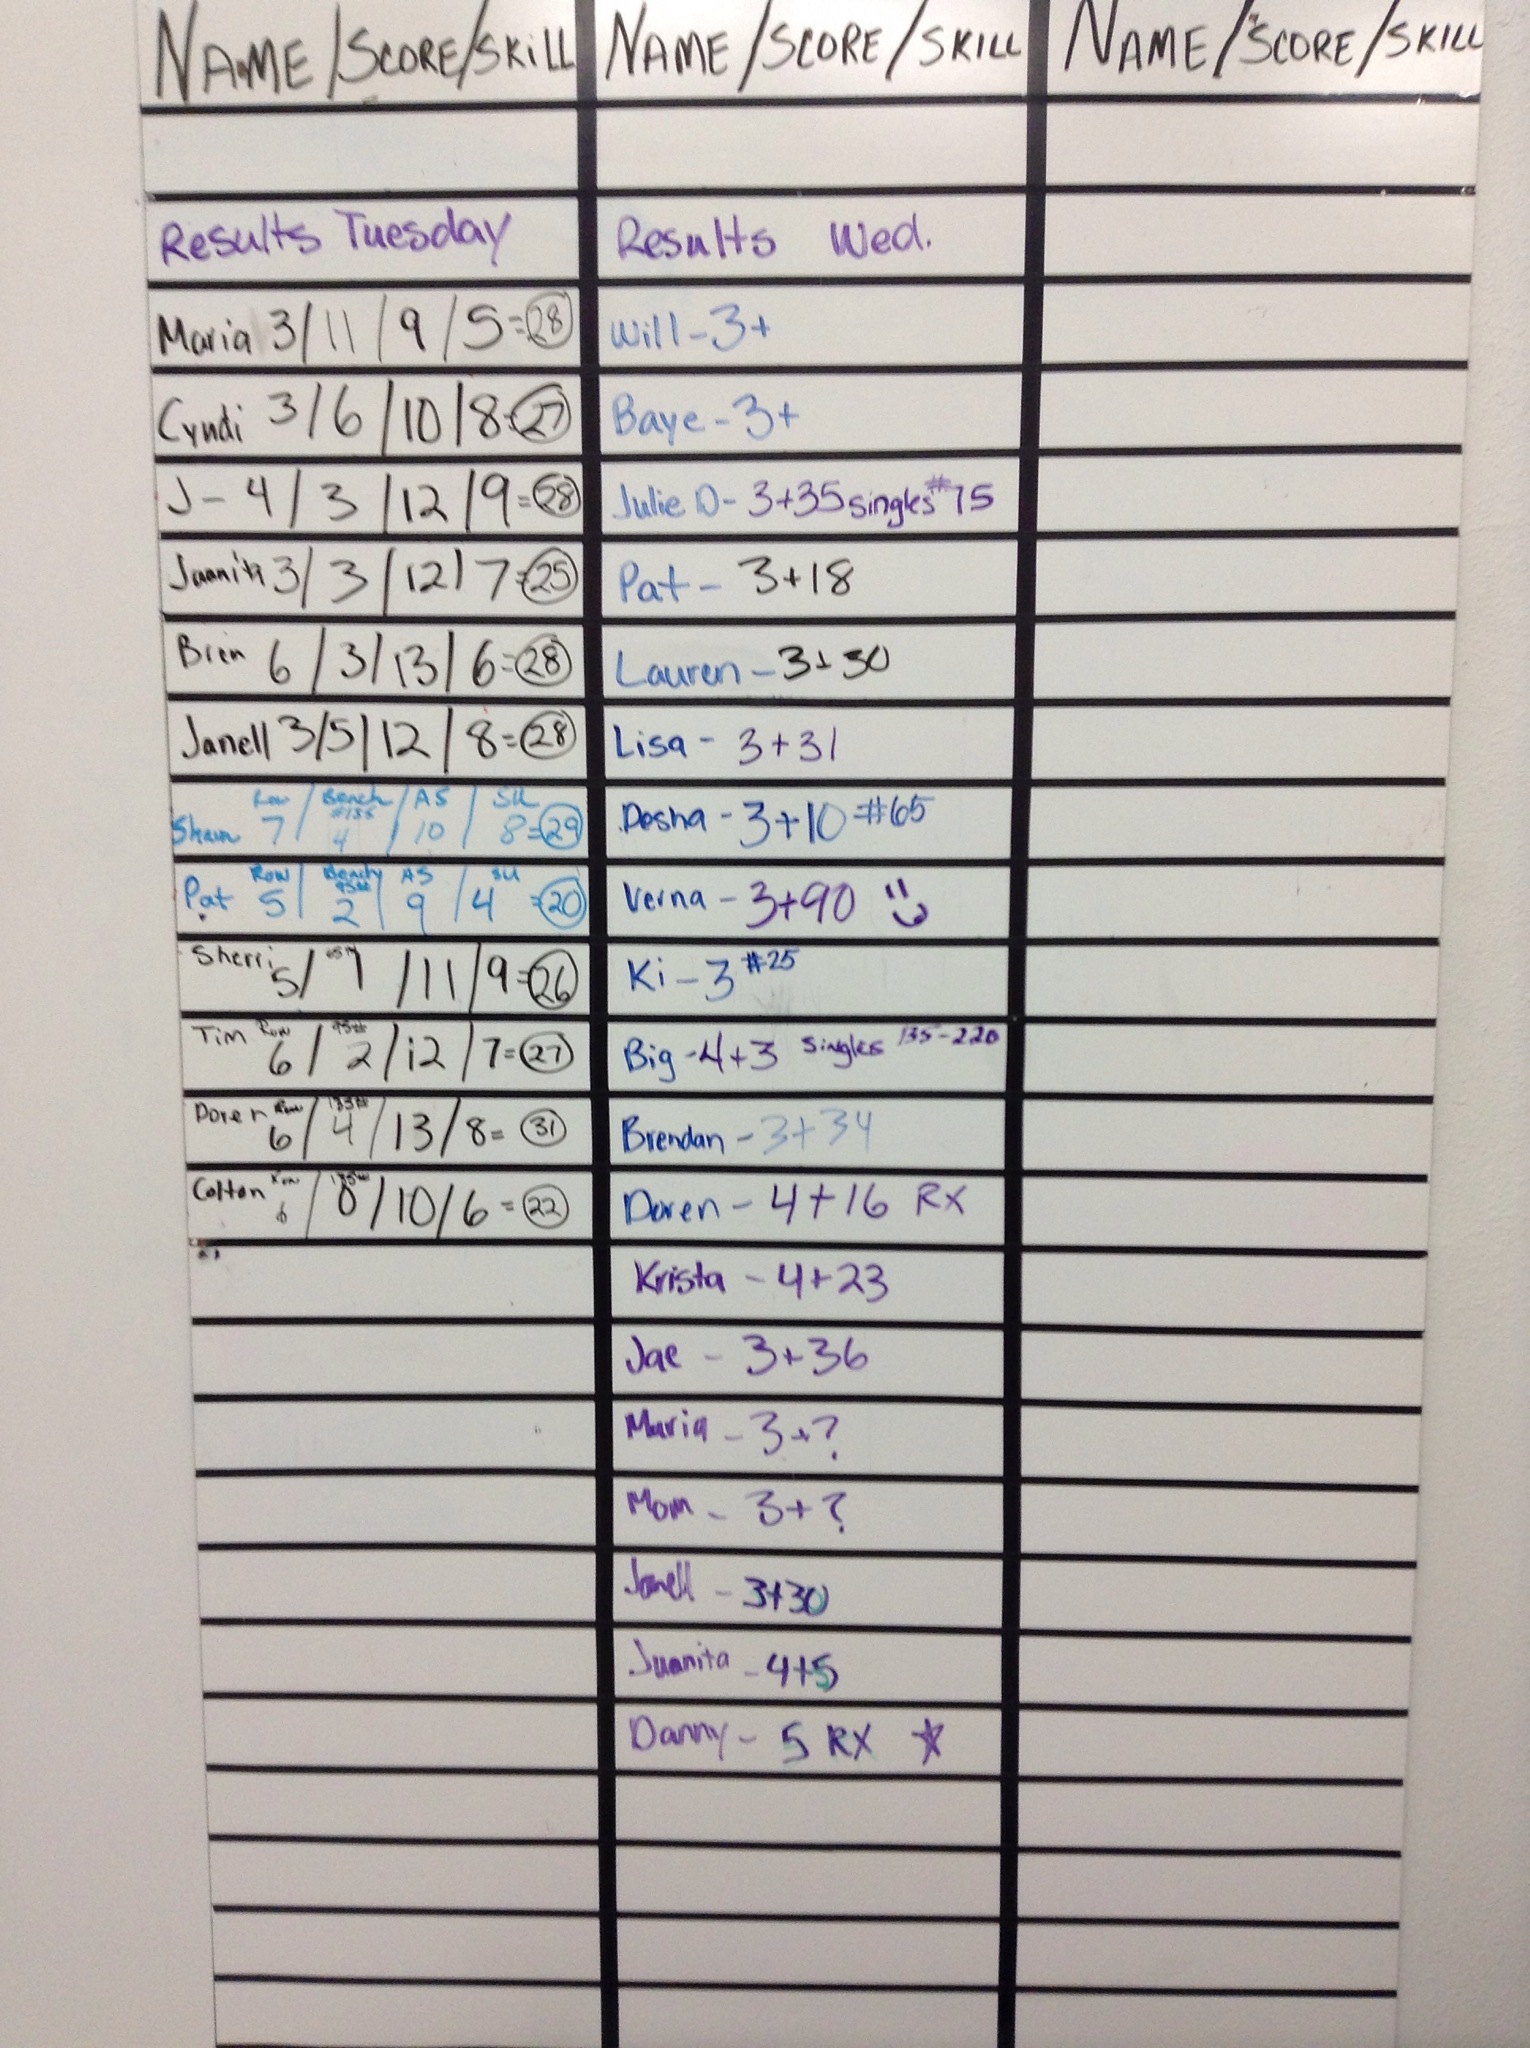 NAME/SCORE/SKILL
Results Tuesday
Maria 3/11/9/5=28
Cyndi 3/6/10/8=27
J- 4/3/12/9=28
Juanita 3/3/12/7=25
Bren 6/3/13/6=28
Janell 3/5/12/8=28
Row / Bench #135 / AS / SU
Shaun 7/4/10/8=29
Row / Bench 95# / AS / SU
Pat 5/2/9/4=20
Sherri 5/1/11/9=26
Tim Row 95#
6/2/12/7=27
Doren Row 135#
6/4/13/8=31
Colton Row 135#
6/0/10/6=22
NAME/SCORE/SKILL
Results Wed.
Will-3+
Baye-3+
Julie D-3+35 singles #75
Pat-3+18
Lauren-3+30
Lisa-3+31
Desha-3+10 #65
Verna-3+90
Ki-3 #25
Big-4+3 singles 135-220
Brendan-3+34
Doren-4+16 RX
Krista-4+23
Jae-3+36
Maria-3+?
Mom-3+?
Janell-3+30
Juanita-4+5
Danny-5 RX
NAME/SCORE/SKILL